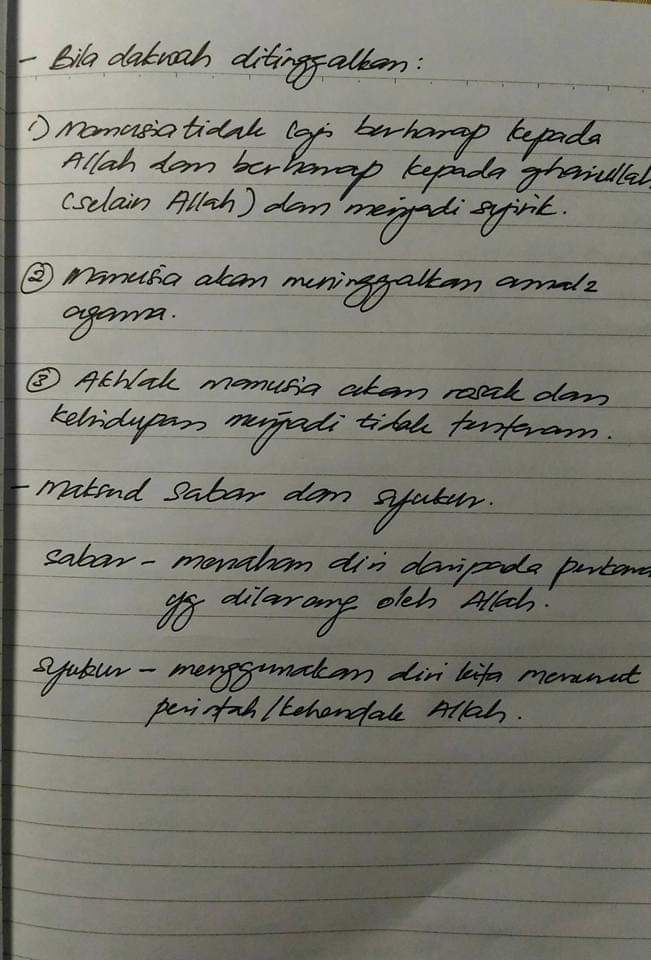 - Bila dakwah ditinggalkan:
1) Manusia tidak lagi berharap kepada
Allah dan berharap kepada ghairullah
(selain Allah) dan menjadi syirik.
② Manusia akan meninggalkan amal2
agama.
③ Akhlak manusia akan rosak dan
kehidupan menjadi tidak tenteram.
- Maksud sabar dan syukur.
sabar - menahan diri daripada perkara
yg dilarang oleh Allah.
syukur - menggunakan diri kita menurut
perintah/kehendak Allah.